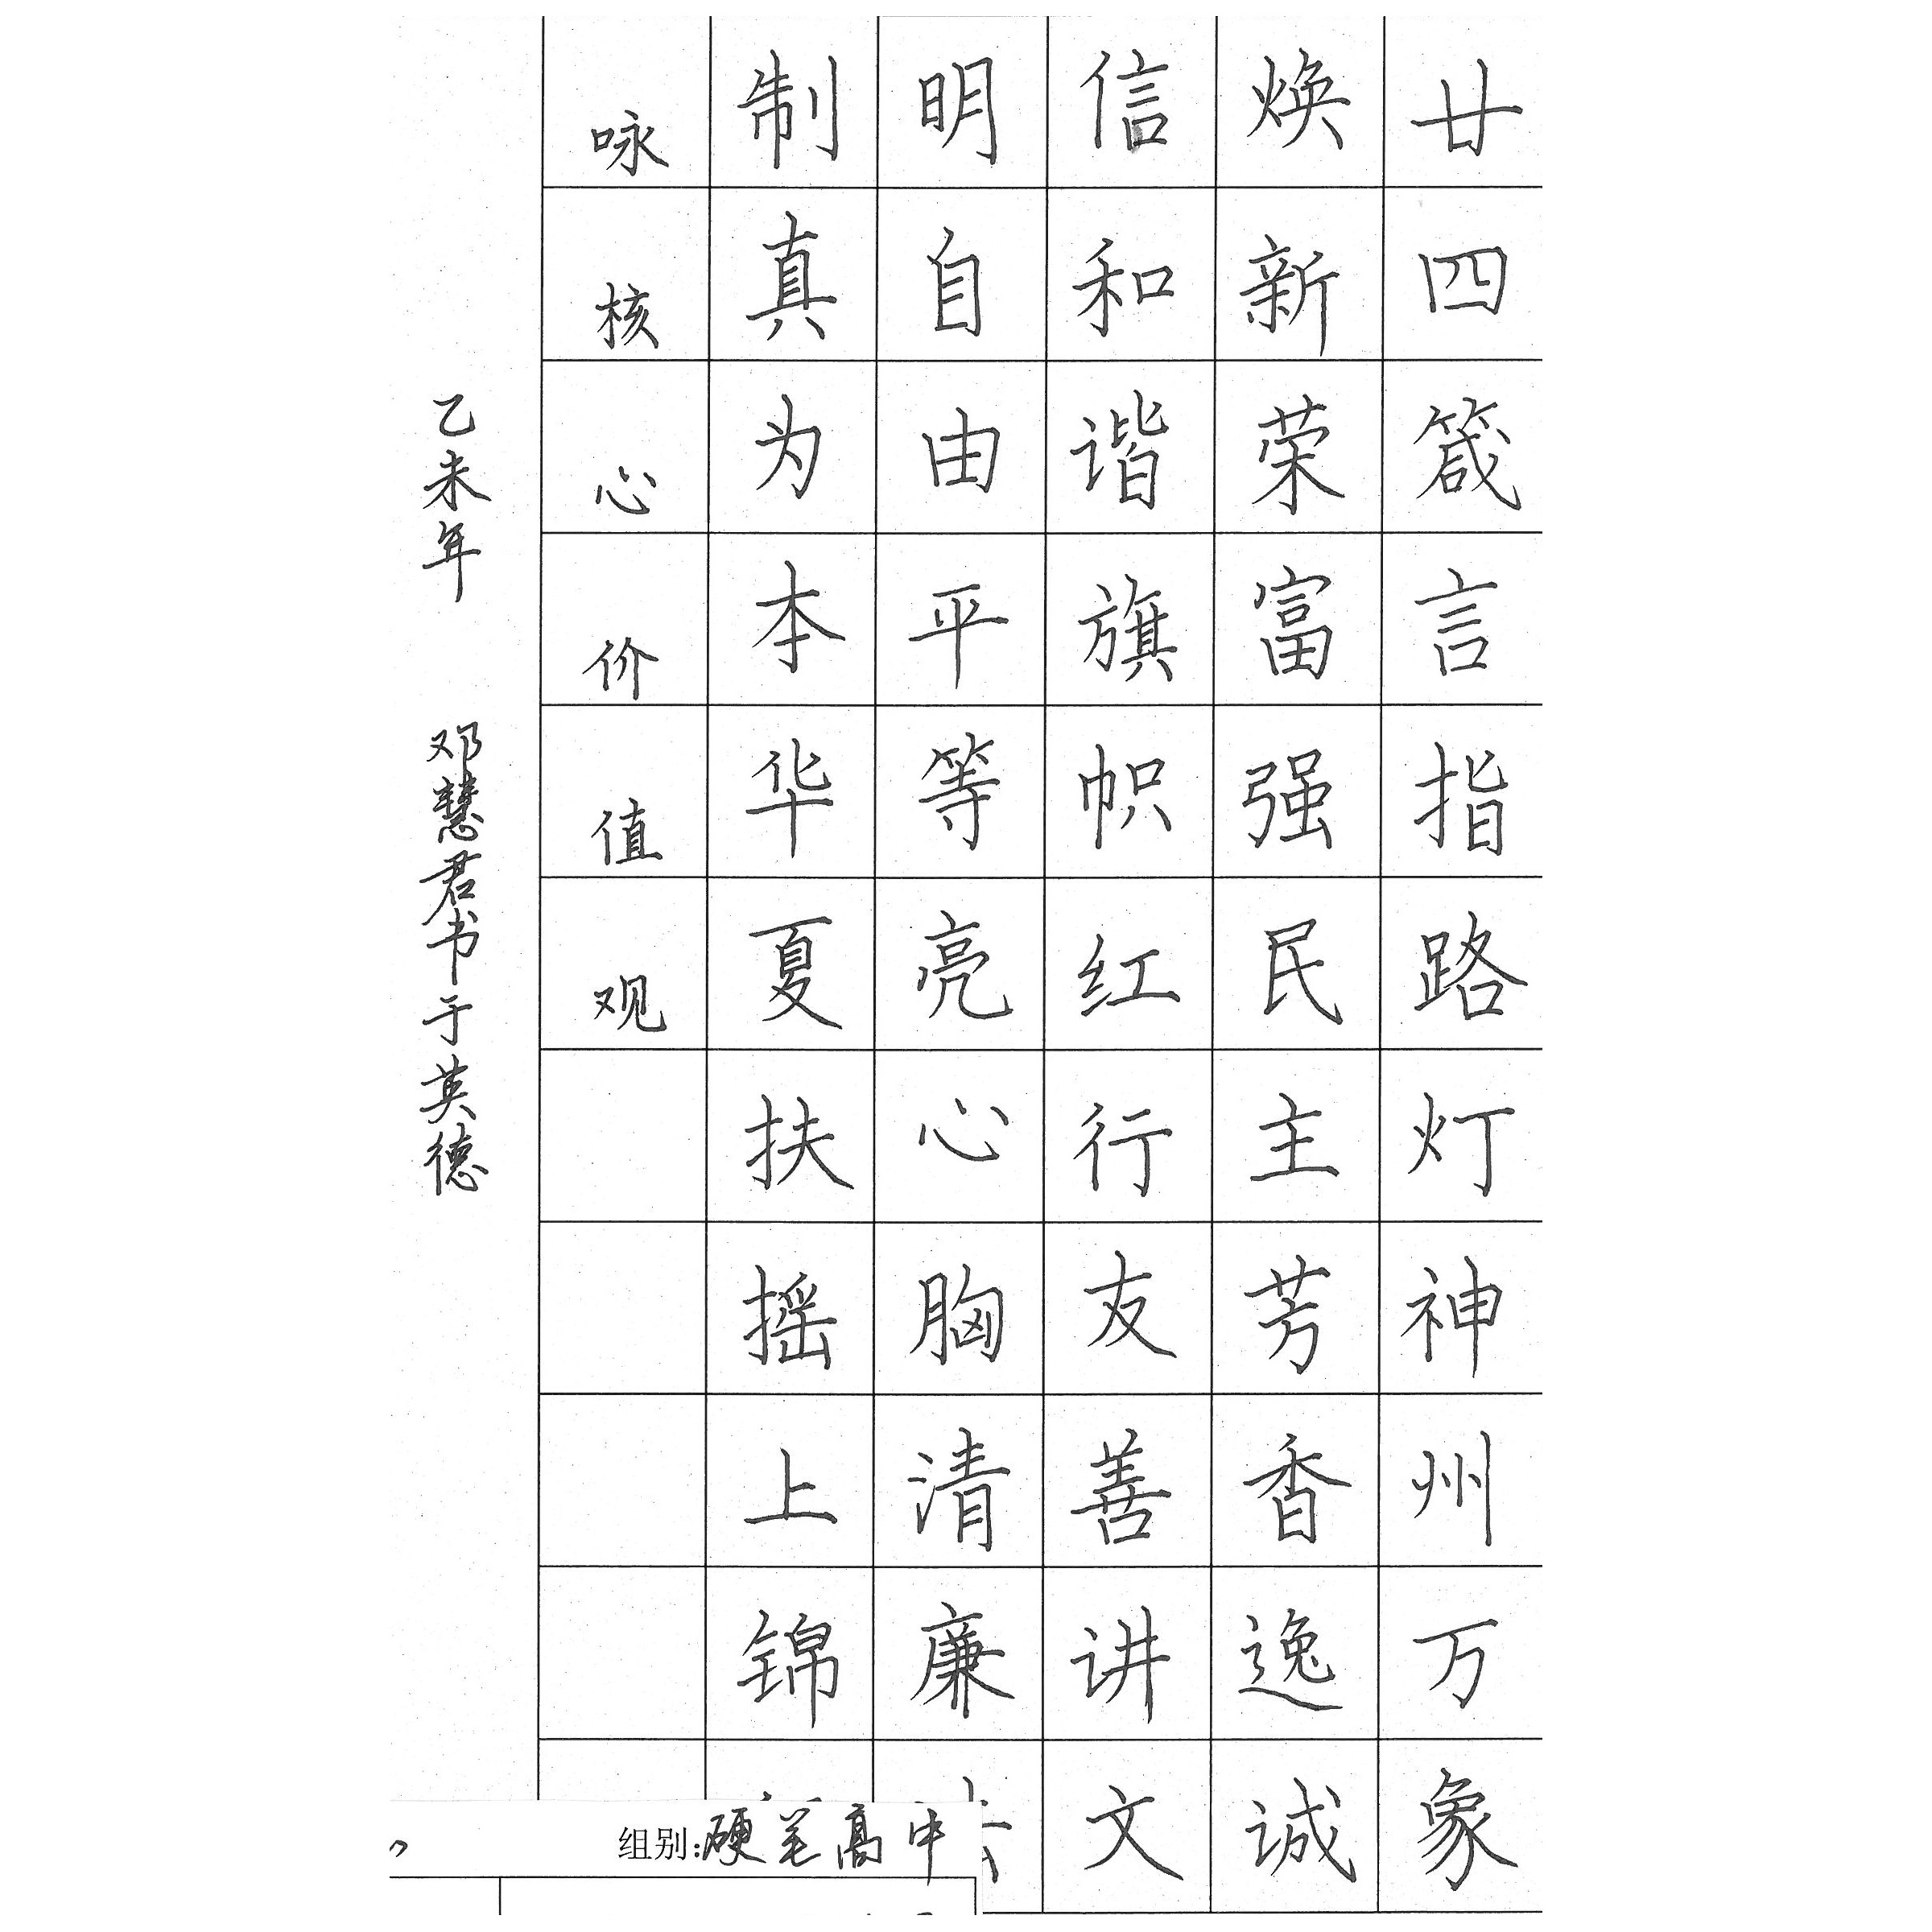 廿四箴言指路灯神州万象
焕新荣富强民主芳香逸诚
信和谐旗帜红行友善讲文
明自由平等亮心胸清廉法
制真为本华夏扶摇上锦
咏核心价值观
乙未年 邓慧君书于英德
组别:硬笔高中